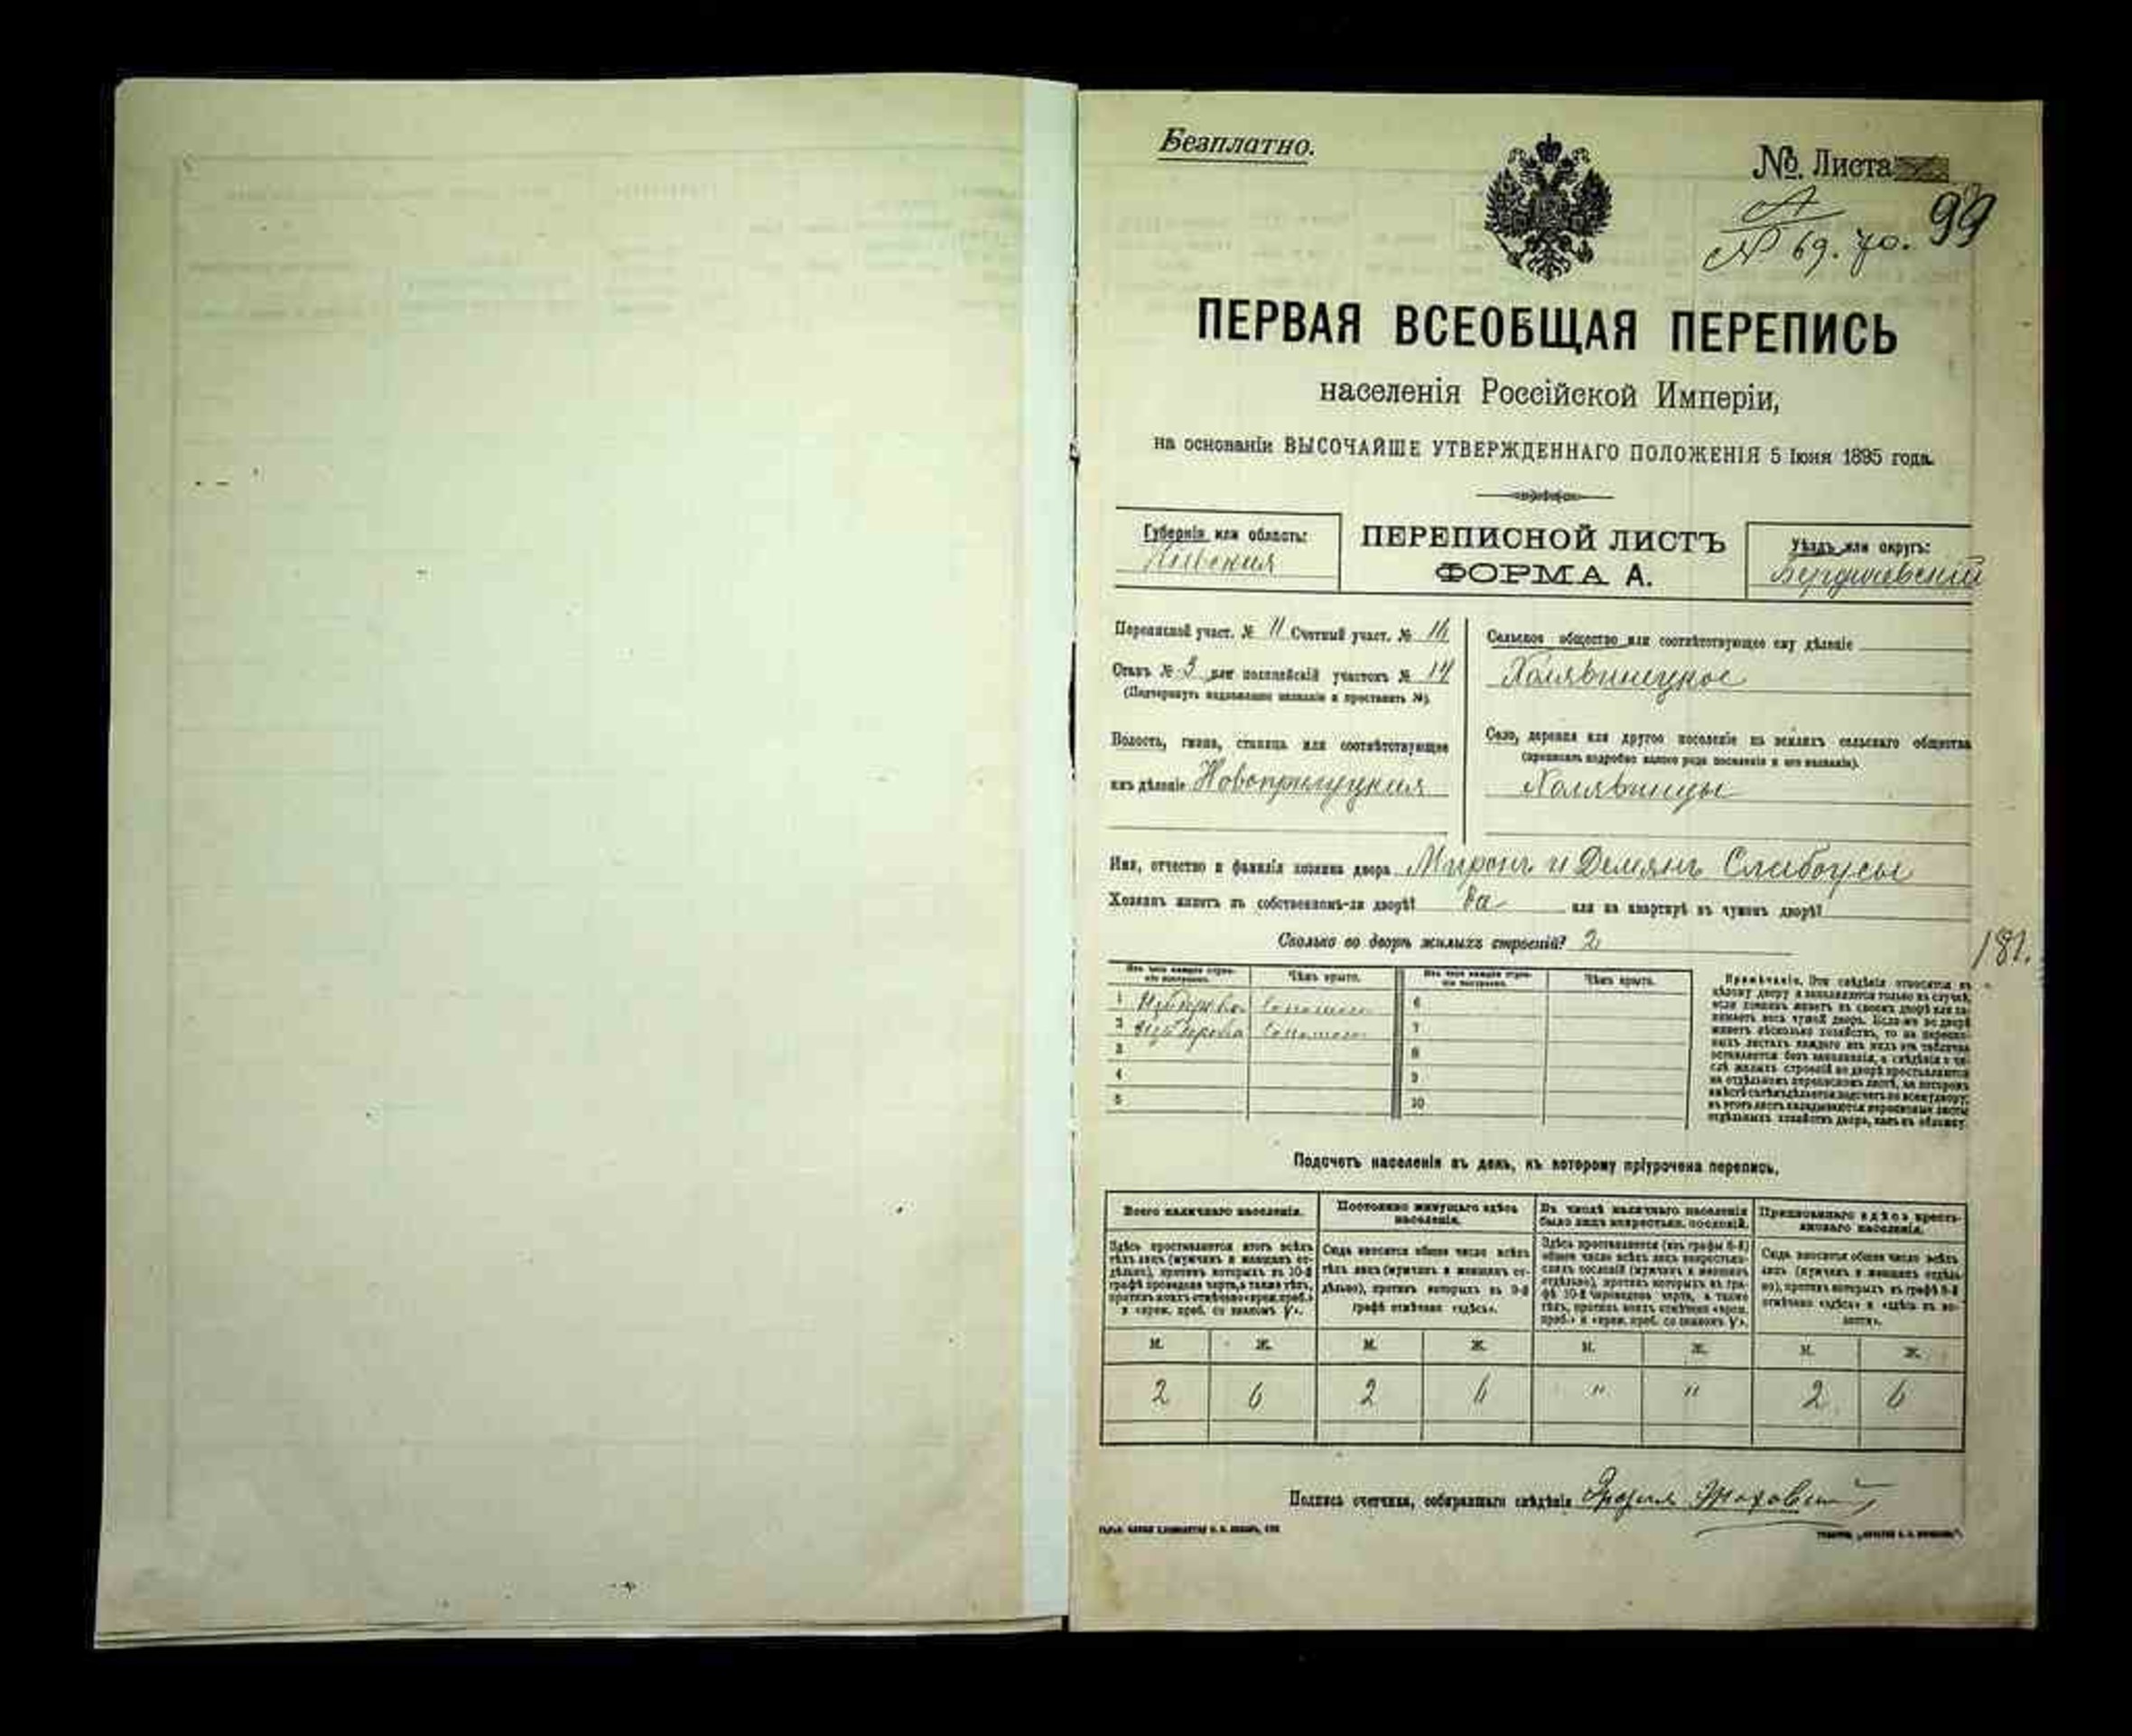 Безплатно.
№. Листа
А
№ 69. 70. 99
ПЕРВАЯ ВСЕОБЩАЯ ПЕРЕПИСЬ
населенія Россійской Имперіи,
на основаніи ВЫСОЧАЙШЕ УТВЕРЖДЕННАГО ПОЛОЖЕНІЯ 5 Іюня 1895 года.
Губернія или область:
Кіевская
ПЕРЕПИСНОЙ ЛИСТЪ
ФОРМА А.
Уѣздъ или округъ:
Бердичевскій
Переписной участ. № 11 Счетный участ. № 16
Станъ № 3 или полицейскій участокъ № 14
(Подчеркнуть надлежащее названіе и проставить №).
Волость, гмина, станица или соотвѣтствующее
имъ дѣленіе Новоприлуцкая
Сельское общество или соотвѣтствующее ему дѣленіе
Холявинецкое
Село, деревня или другое поселеніе на земляхъ сельскаго общества
(прописать подробно какого рода поселеніе и его названіе).
Холявинцы
Имя, отчество и фамилія хозяина двора Миронъ и Демянъ Слабоусы
Хозяинъ живетъ въ собственномъ-ли дворѣ? да или на квартирѣ въ чужомъ дворѣ?
Сколько во дворѣ жилыхъ строеній? 2
181.
Изъ чего каждое строеніе построено. Чѣмъ крыто. Изъ чего каждое строеніе построено. Чѣмъ крыто.
1 соломою 6
2 соломою 7
3 8
4 9
5 10
Примѣчаніе. Эти свѣдѣнія относятся къ
цѣлому двору и заполняются только въ случаѣ,
если хозяинъ живетъ въ своемъ дворѣ или занимаетъ весь чужой дворъ. Если-же во дворѣ
живетъ нѣсколько хозяйствъ, то на переписныхъ листахъ каждаго изъ нихъ эта табличка
оставляется безъ заполненія, а свѣдѣнія о числѣ жилыхъ строеній во дворѣ проставляются
на отдѣльномъ переписномъ листѣ, на которомъ
вмѣстѣ съ тѣмъ дѣлается подсчетъ по всему двору;
въ этотъ листъ вкладываются переписные листы
отдѣльныхъ хозяйствъ двора, какъ въ обложку.
Подсчетъ населенія въ день, къ которому пріурочена перепись.
Всего наличнаго населенія.
Постоянно живущаго здѣсь населенія.
Въ числѣ наличнаго населенія было лицъ некрестьян. сословій.
Приписаннаго здѣсь крестьянскаго населенія.
Здѣсь проставляется итогъ всѣхъ
тѣхъ лицъ (мужчинъ и женщинъ отдѣльно), противъ которыхъ въ 10-й
графѣ проведена черта, а также тѣхъ,
противъ коихъ отмѣчено «врем. преб.»
и «врем. преб. со знакомъ V».
Сюда вносится общее число всѣхъ
тѣхъ лицъ (мужчинъ и женщинъ отдѣльно), противъ которыхъ въ 9-й
графѣ отмѣчено «здѣсь».
Здѣсь проставляется (изъ графы 6-й)
общее число всѣхъ лицъ некрестьянскихъ сословій (мужчинъ и женщинъ
отдѣльно), противъ которыхъ въ графѣ 10-й проведена черта, а также
тѣхъ, противъ коихъ отмѣчено «врем.
преб.» и «врем. преб. со знакомъ V».
Сюда вносится общее число всѣхъ
лицъ (мужчинъ и женщинъ отдѣльно), противъ которыхъ въ графѣ 8-й
отмѣчено «здѣсь» и «здѣсь въ волости».
М. Ж. М. Ж. М. Ж. М. Ж.
2 6 2 6 " " 2 6
Подпись счетчика, собиравшаго свѣдѣнія